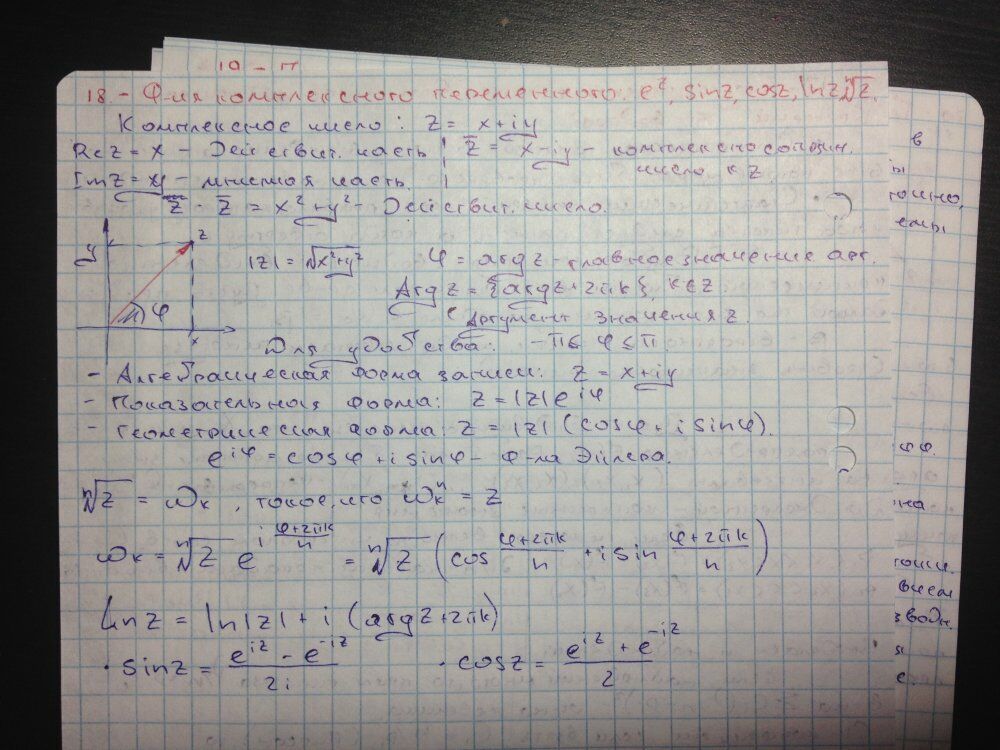 18. - Ф-ия комплексного переменного. e^z, sinz, cosz, lnz, ⁿ√z.
Комплексное число: z = x+iy
Rez = x - Действит. часть z̅ = x-iy - комплексно сопряж.
число к z.
Imz = y - мнимая часть.
z · z̅ = x²+y² - Действит. число.
y
z
|z| = √x²+y²
φ = argz - главное значение арг.
Argz = {argz+2πk}, k∈z
Аргумент значения z.
φ
x
Для удобства: -π≤ φ ≤π
- Алгебраическая форма записи: z = x+iy
- Показательная форма: z = |z|e^iφ
- Геометрическая форма: z = |z| (cosφ + i sinφ).
e^iφ = cosφ + i sinφ - Ф-ла Эйлера.
ⁿ√z = ωₖ, такое, что ωₖⁿ = z
ωₖ = ⁿ√z e^(i (φ+2πk)/n) = ⁿ√z (cos (φ+2πk)/n + i sin (φ+2πk)/n)
Lnz = ln|z| + i (argz+2πk)
· sinz = (e^iz - e^-iz)/2i · cosz = (e^iz + e^-iz)/2